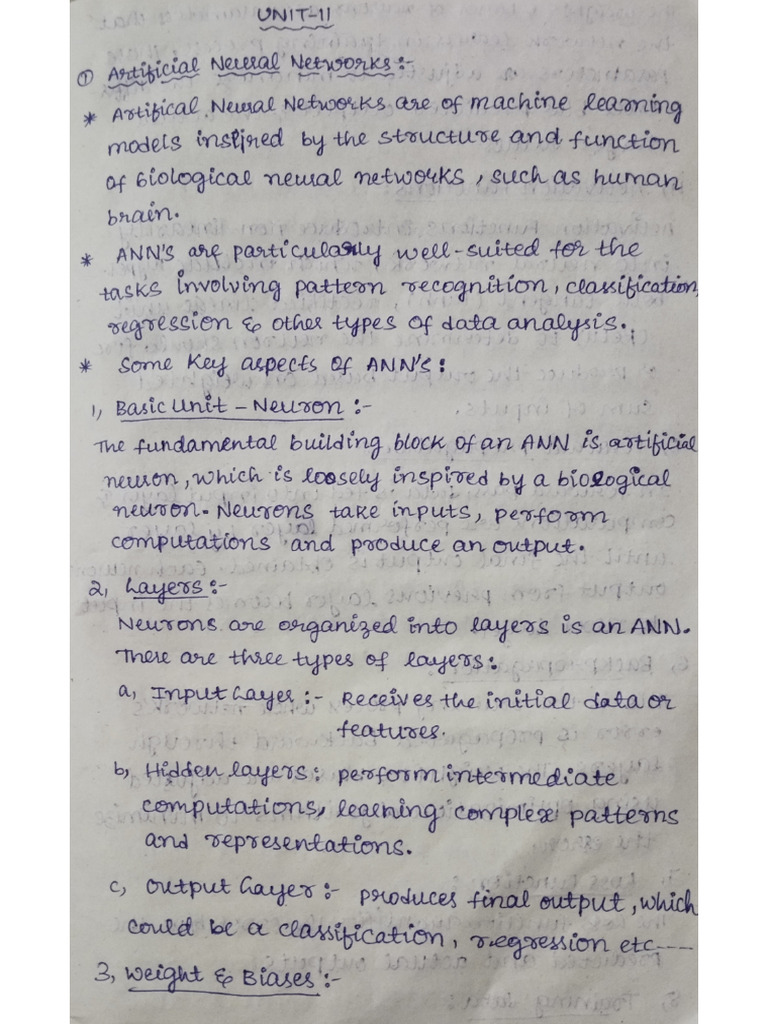 UNIT-11
① Artificial Neural Networks:-
* Artifical Neural Networks are of machine learning
models inspired by the structure and function
of biological neural networks, such as human
brain.
* ANN's are particularly well-suited for the
tasks involving pattern recognition, classification,
regression & other types of data analysis.
* Some key aspects of ANN's:
1, Basic Unit - Neuron :-
The fundamental building block of an ANN is artificial
neuron, which is loosely inspired by a biological
neuron. Neurons take inputs, perform
computations and produce an output.
2, Layers:-
Neurons are organized into layers is an ANN.
There are three types of layers:
a, Input Layer :- Receives the initial data or
features.
b, Hidden layers: perform intermediate
computations, learning complex patterns
and representations.
c, Output Layer:- produces final output, which
could be a classification, regression etc----
3, Weight & Biases:-